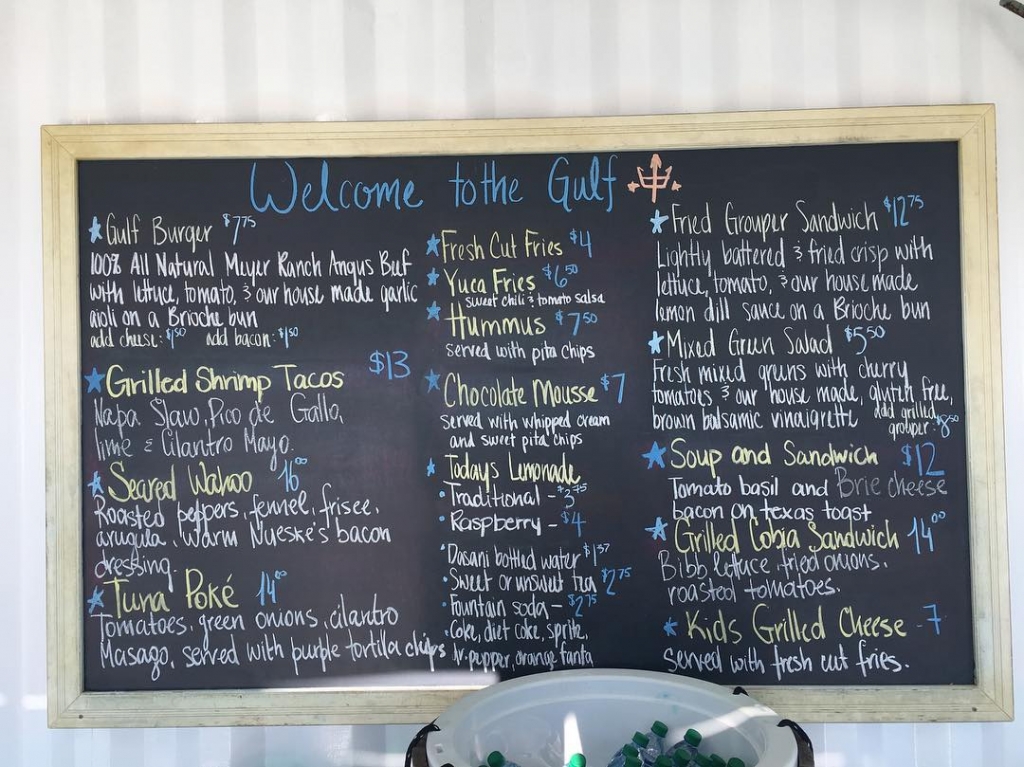 Welcome to the Gulf
Gulf Burger $7.75
100% All Natural Meyer Ranch Angus Beef
with lettuce, tomato, & our house made garlic
aioli on a Brioche bun
add cheese: $1.50 add bacon: $1.50
Grilled Shrimp Tacos $13
Napa Slaw, Pico de Gallo,
lime & Cilantro Mayo.
Seared Wahoo 16.00
Roasted peppers, fennel, frisee,
arugula, Warm Nueske's bacon
dressing.
Tuna Poké 14.00
Tomatoes, green onions, cilantro
Masago, served with purple tortilla chips
Fresh Cut Fries $4
Yuca Fries $6.50
sweet chili & tomato salsa
Hummus $7.50
served with pita chips
Chocolate Mousse $7
served with whipped cream
and sweet pita chips
Todays Lemonade
• Traditional - $3.75
• Raspberry - $4
• Dasani bottled water $1.37
• Sweet or unsweet tea $2.75
• Fountain soda - $2.75
• Coke, diet coke, sprite,
dr. pepper, orange fanta
Fried Grouper Sandwich $12.75
Lightly battered & fried crisp with
lettuce, tomato, & our house made
lemon dill sauce on a Brioche bun
Mixed Green Salad $5.50
Fresh mixed greens with cherry
tomatoes & our house made, gluten free,
brown balsamic vinaigrette add grilled
grouper: $8.50
Soup and Sandwich $12
Tomato basil and Brie cheese
bacon on texas toast
Grilled Cobia Sandwich 14.00
Bibb lettuce, fried onions,
roasted tomatoes.
Kids Grilled Cheese - 7
Served with fresh cut fries.